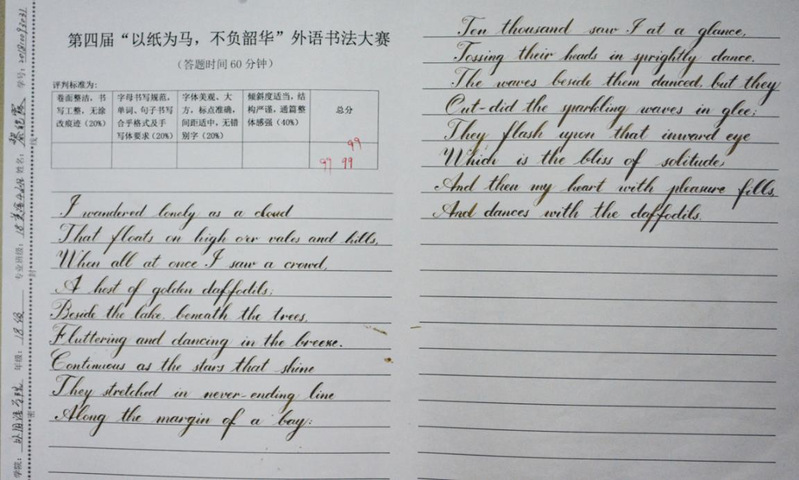 第四届“以纸为马，不负韶华”外语书法大赛
（答题时间 60 分钟）
评判标准为:
卷面整洁，书写工整，无涂改痕迹（20%）
字母书写规范，单词、句子书写合乎格式及手写体要求（20%）
字体美观、大方，标点准确，间距适中，无错别字（20%）
倾斜度适当，结构严谨，通篇整体感强（40%）
总分
99
97 99
I wandered lonely as a cloud
That floats on high o'er vales and hills,
When all at once I saw a crowd,
A host of golden daffodils;
Beside the lake, beneath the trees,
Fluttering and dancing in the breeze.
Continuous as the stars that shine
They stretched in never-ending line
Along the margin of a bay:
Ten thousand saw I at a glance,
Tossing their heads in sprightly dance.
The waves beside them danced, but they
Out-did the sparkling waves in glee;
They flash upon that inward eye
Which is the bliss of solitude;
And then my heart with pleasure fills,
And dances with the daffodils.
学院:
年级: 18级
专业班级:
姓名:
学号:
密
封
线